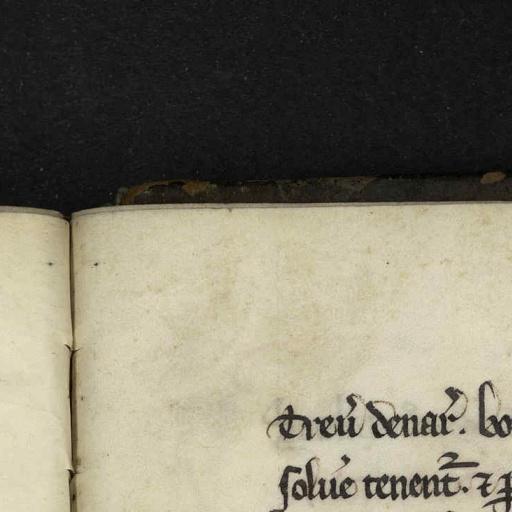 Trev̄ denar̄. bo
solūe tenent̄. ⁊ p